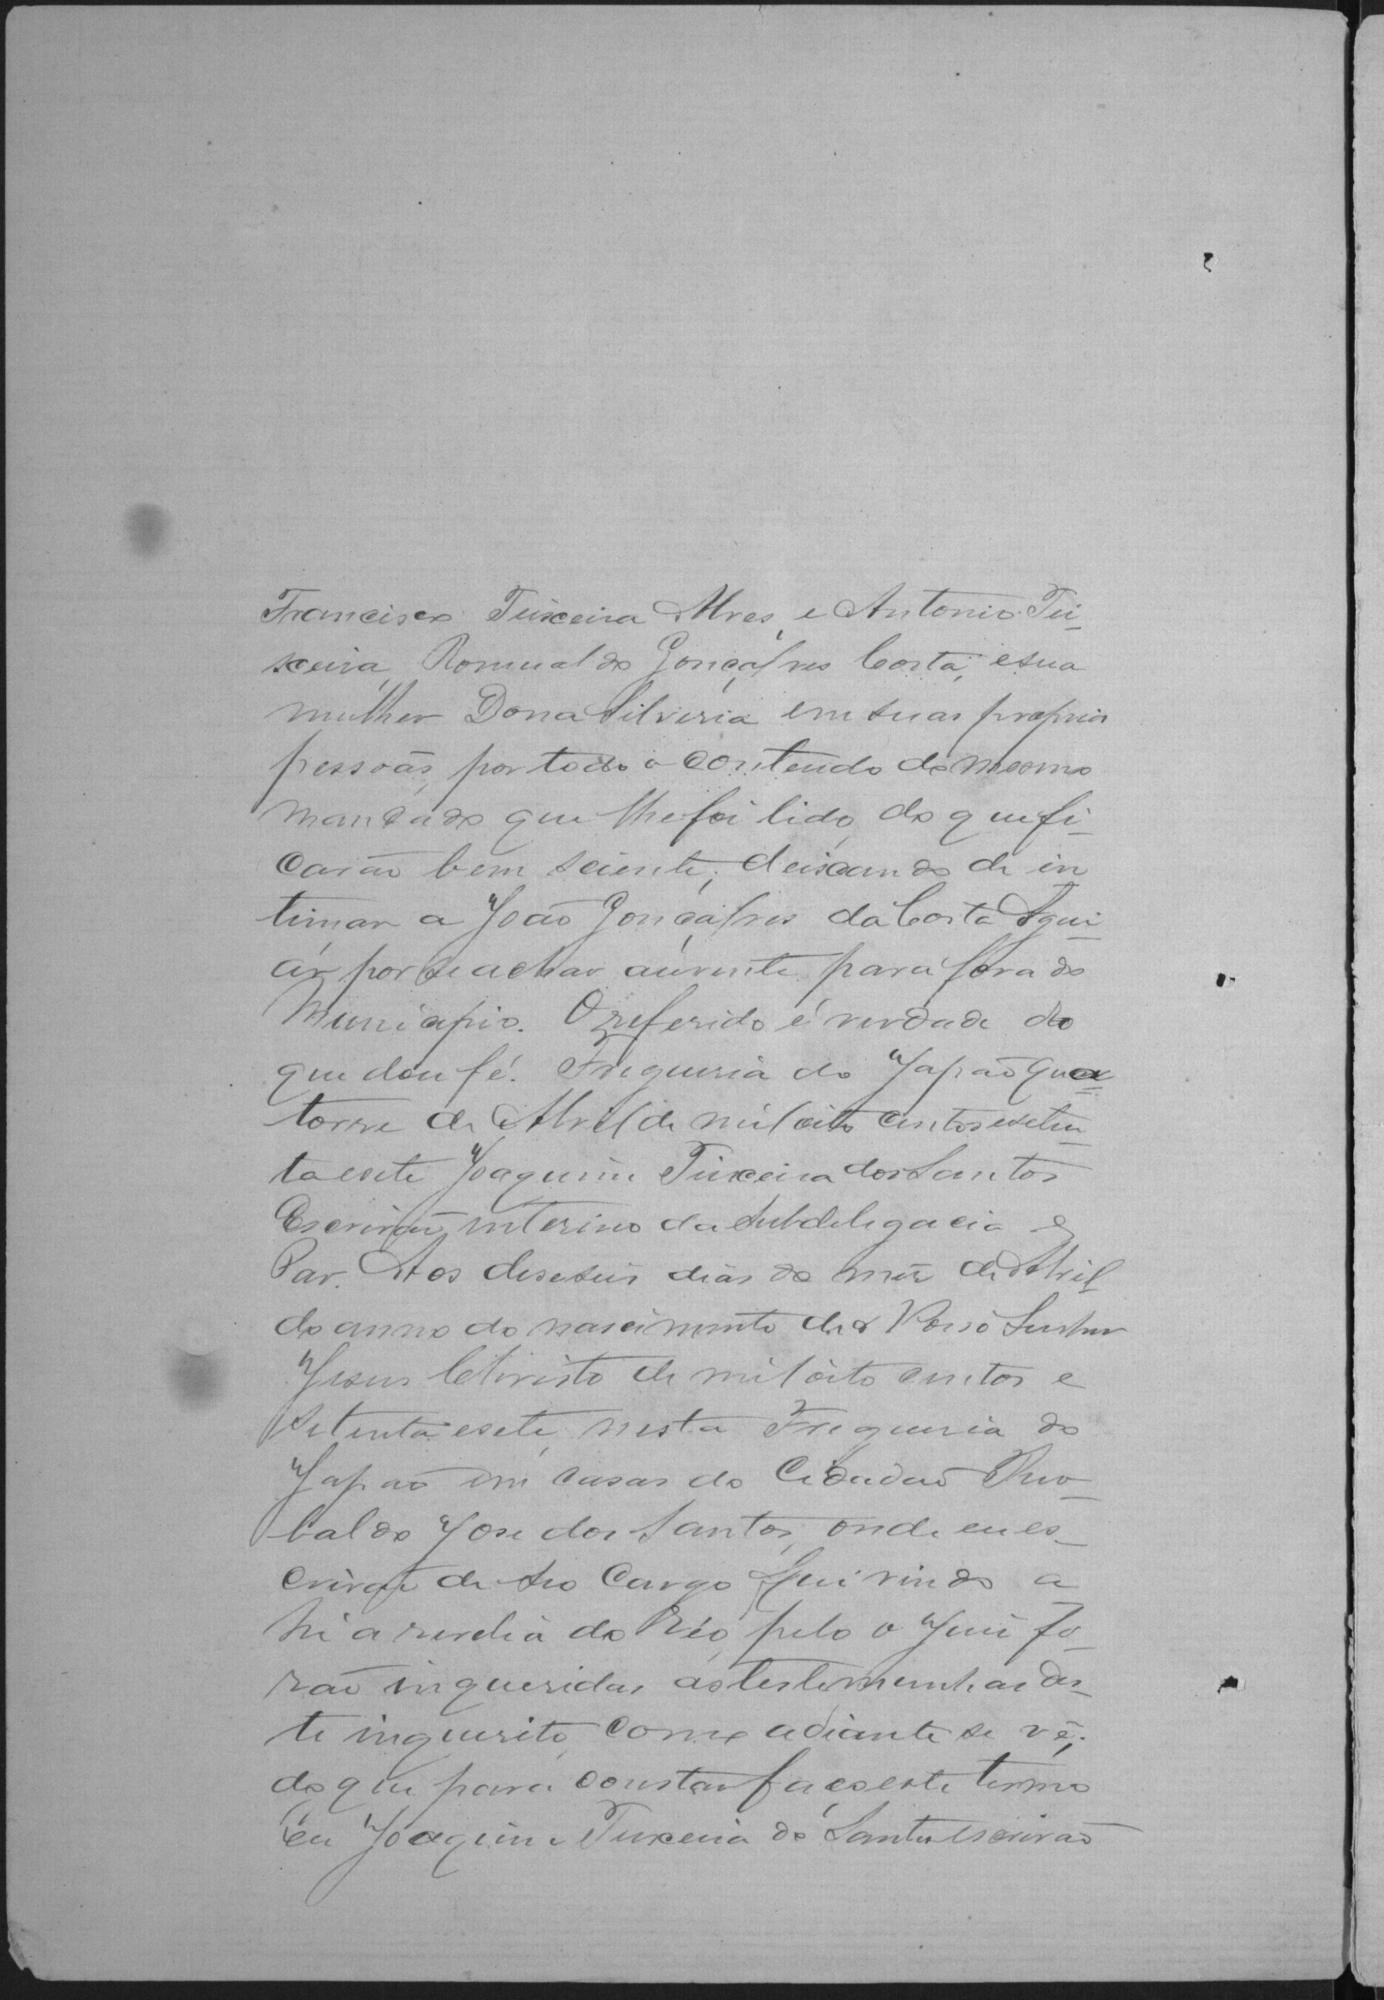 Francisco Teixeira Alves, e Antonio Tei-
xeira, Romualdo Gonçalves Costa, e sua
mulher Dona Silveria em suas proprias
pessoãs, por todo o conteudo do mesmo
mandado que lhe foi lido, do que fi-
carão bem sciente, deixando de in
timar a João Gonçalves da Costa Agui-
ar por se achar auzente para fora do
Municipio. O referido é verdade do
que dou fé. Freguezia do Japão qua-
torze de Abril de mil oito centos e seten-
ta e sete Joaquim Teixeira dos Santos
Escrivão interino da Subdelegacia e
Paz. Aos deseseis dias do mez de Abril
do anno do nascimento de Nosso Senhor
Jesus Christo de mil oito centos e
setenta e sete, nesta Freguezia do
Japão em casas do Cidadão
José dos Santos, onde eu es-
crivão de seo cargo fui vindo a
hi a revelia do Réo, pelo o Juiz fo-
rão inqueridas as testemunhas des-
te inquerito, como adiante se vê,
do que para constar faço este termo
eu Joaquim Teixeira dos Santos escrivão